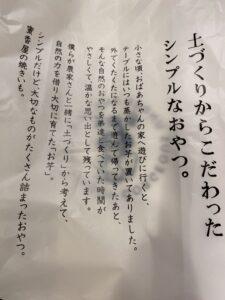 土づくりからこだわった
シンプルなおやつ。
小さな頃、おばあちゃんの家へ遊びに行くと、
テーブルにはいつも蒸かしたお芋が置いてありました。
外でくたくたになるまで遊んで帰ってきたあと、
そんな自然のおやつを弟達と食べていた時間が
やさしくて、温かな思い出として残っています。
僕らが農家さんと一緒に「土づくり」から考えて、
自然の力を借り大切に育てた「お芋」。
蜜香屋の焼きいも。
シンプルだけど、大切なものがたくさん詰まったおやつ。